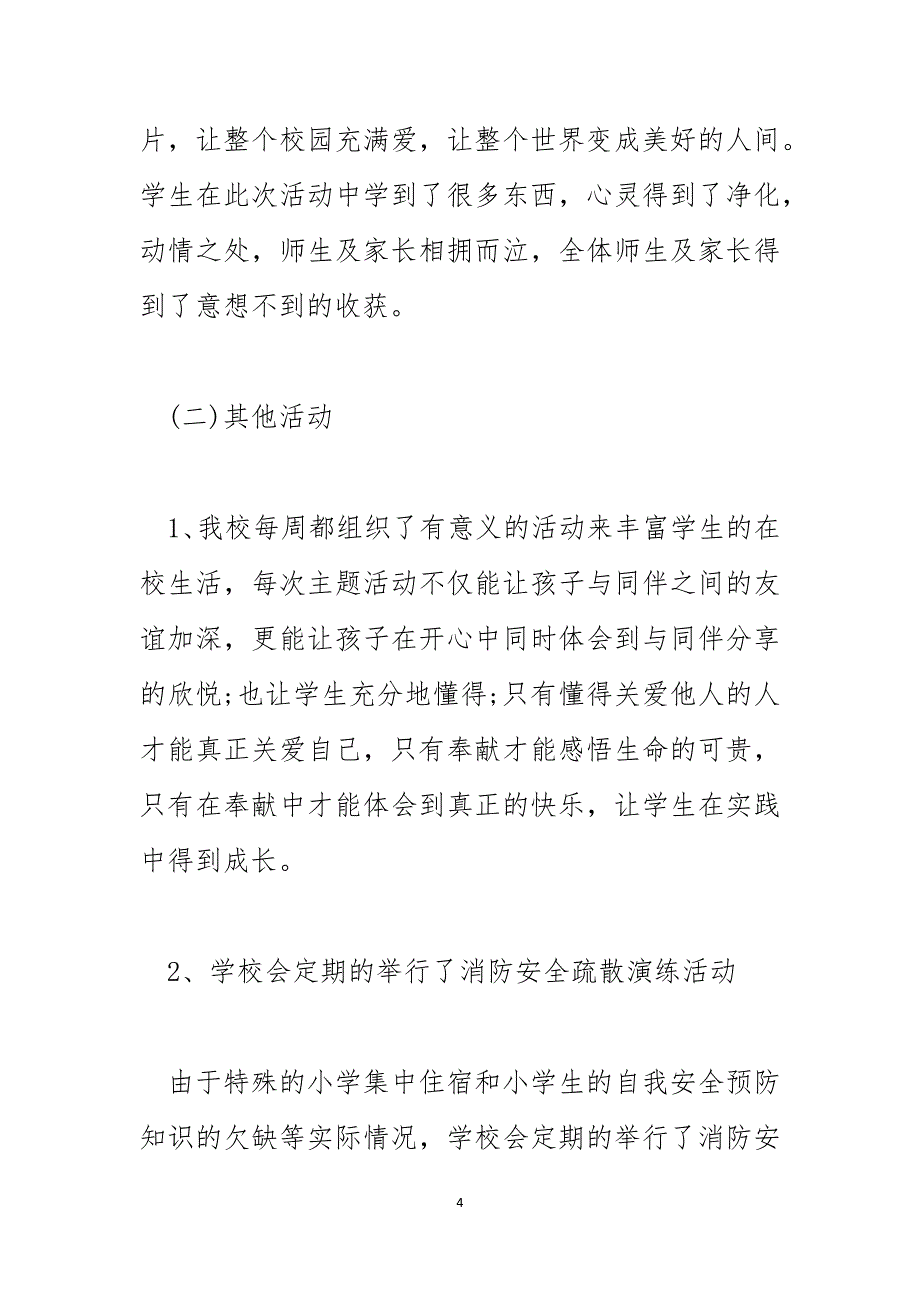 片，让整个校园充满爱，让整个世界变成美好的人间。
学生在此次活动中学到了很多东西，心灵得到了净化，
动情之处，师生及家长相拥而泣，全体师生及家长得
到了意想不到的收获。
(二)其他活动
1、我校每周都组织了有意义的活动来丰富学生的在
校生活，每次主题活动不仅能让孩子与同伴之间的友
谊加深，更能让孩子在开心中同时体会到与同伴分享
的欣悦;也让学生充分地懂得;只有懂得关爱他人的人
才能真正关爱自己，只有奉献才能感悟生命的可贵，
只有在奉献中才能体会到真正的快乐，让学生在实践
中得到成长。
2、学校会定期的举行了消防安全疏散演练活动
由于特殊的小学集中住宿和小学生的自我安全预防
知识的欠缺等实际情况，学校会定期的举行了消防安
4